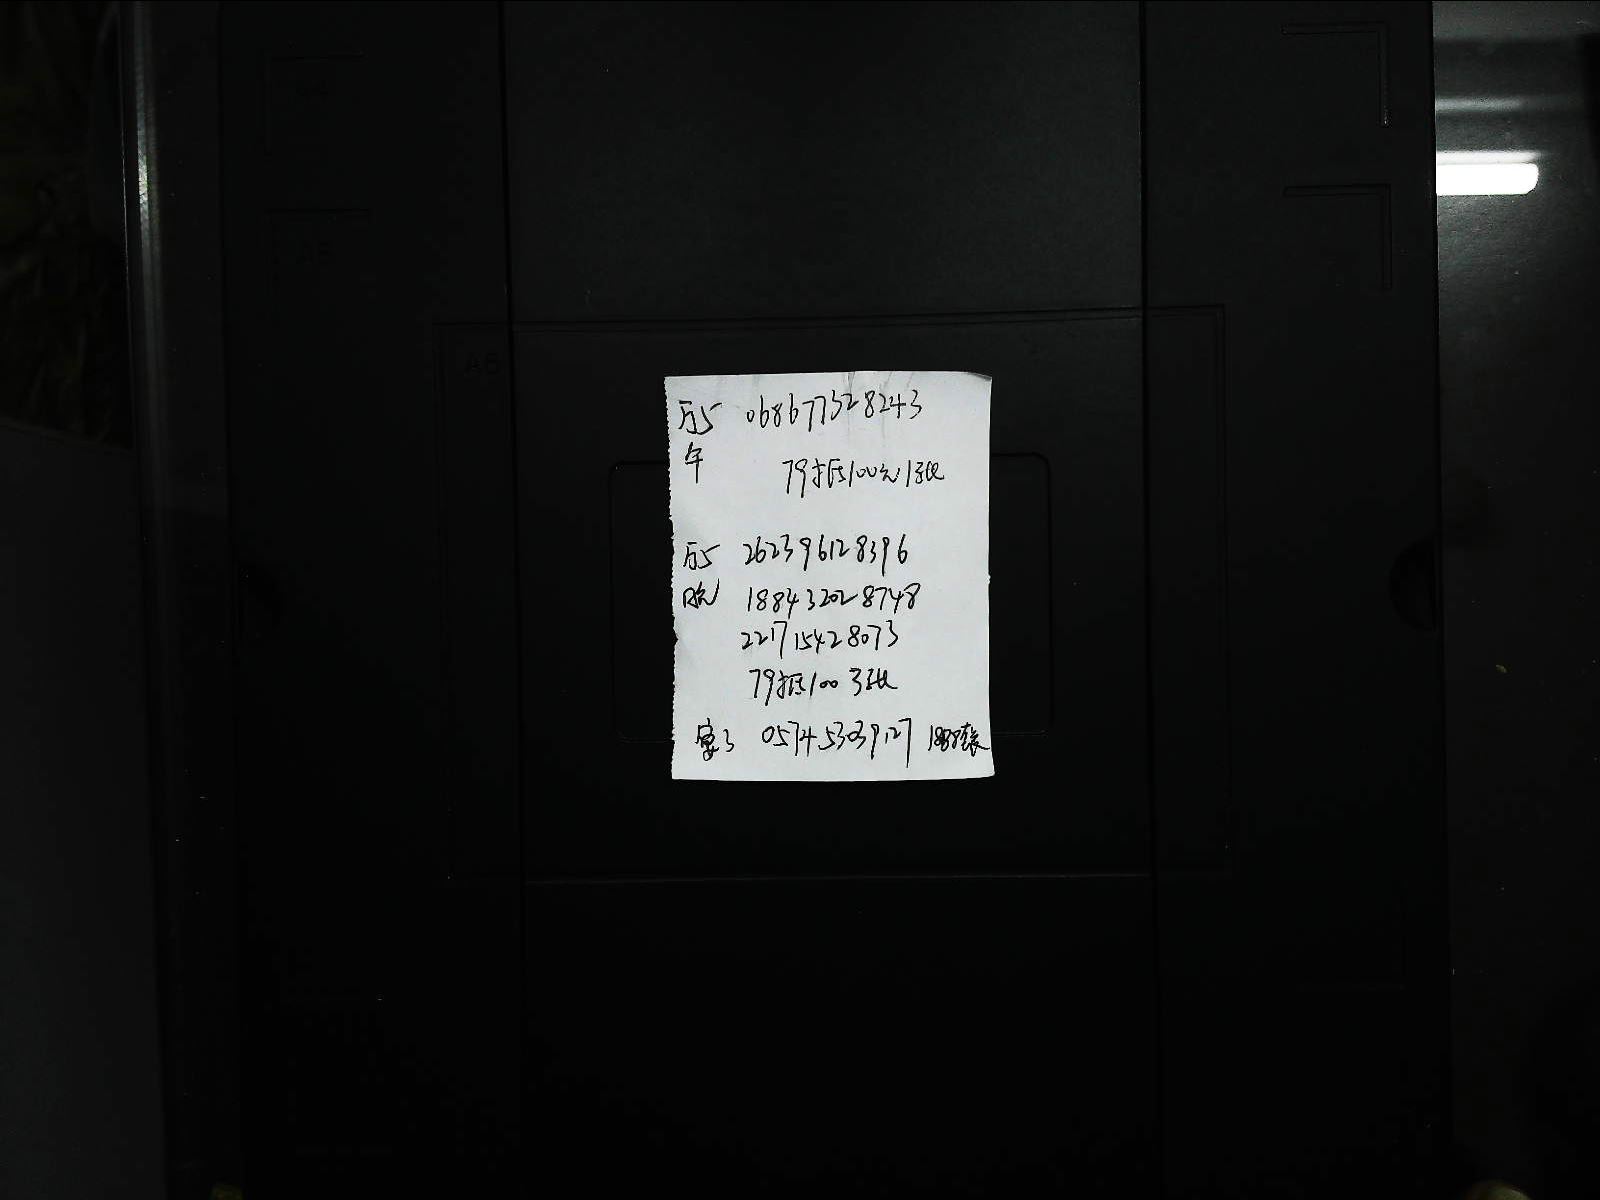 历5 068677328243
午 79抵100元1张
历5 262396128396
晚 188432028748
221715428073
79抵100 3张
宴3 057453039127
A5
A6